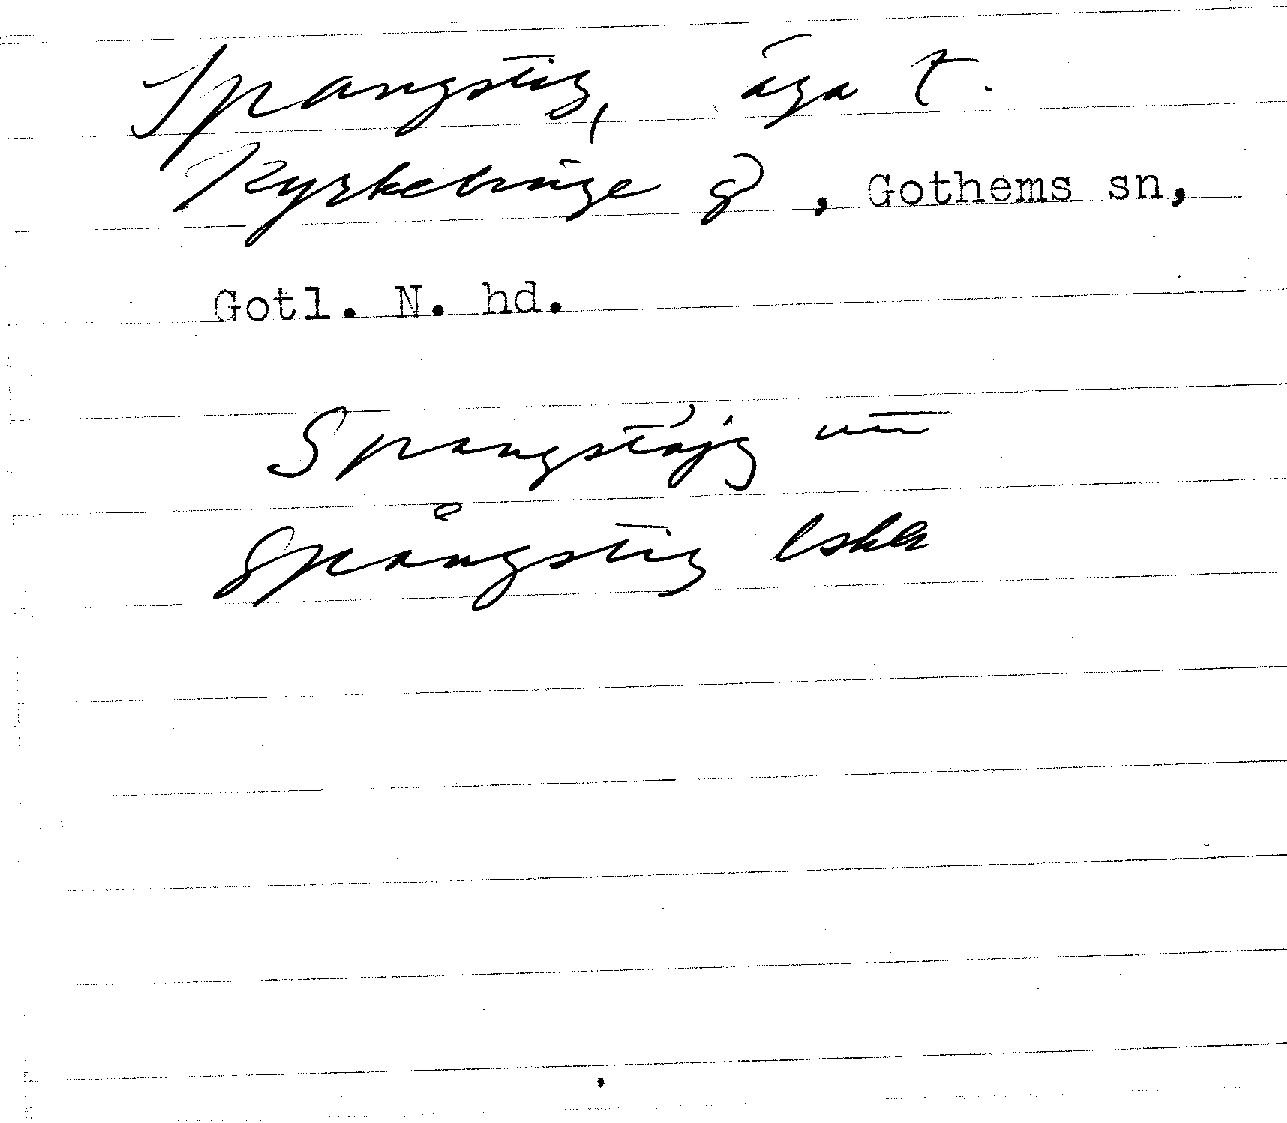 Spangstig, äga t.
Kyrkebinge g, Gothems sn,
Gotl. N. hd.
Spangstäjg
Spångstig Eskr